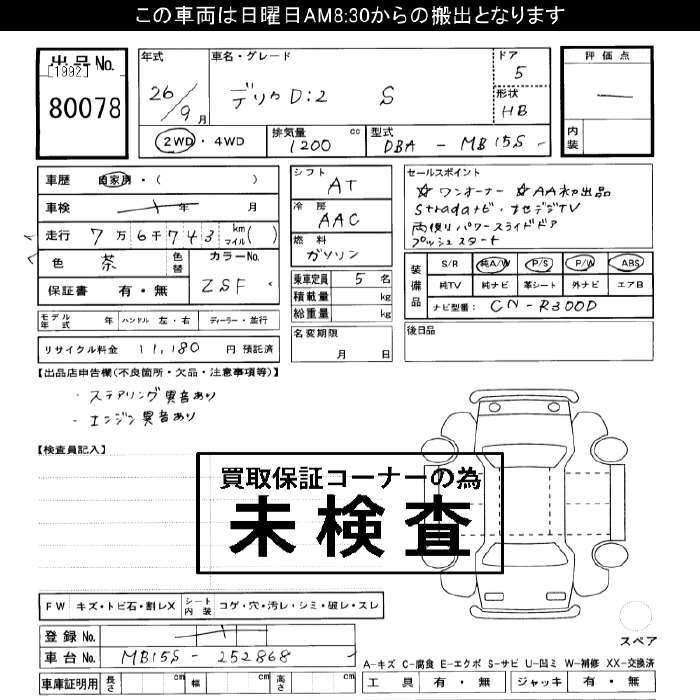 この車両は日曜日AM8:30からの搬出となります
出品No.
[1992]
80078
年式 車名・グレード ドア
26/9月 デリカD:2 S 5
形状
HB
2WD・4WD 排気量 1200 cc 型式 DBA - MB15S -
評価点
内装
車歴 自家用・( )
車検 年 月
走行 7万6千743 km マイル( )
色 茶 色替 カラーNo. ZSF
保証書 有・無
モデル年式 年 ハンドル 左・右 ディーラー・並行
リサイクル料金 11,180 円 預託済
シフト
AT
冷房
AAC
燃料
ガソリン
乗車定員 5 名
積載量 kg
総重量 kg
名変期限
月 日
セールスポイント
☆ワンオーナー ☆AA初出品
Stradaナビ・フセグTV
両側リパワースライドドア
プッシュスタート
装備品
S/R 純A/W P/S P/W ABS
純TV 純ナビ 革シート 外ナビ エアB
ナビ型番: CN-R300D
後日品
【出品店申告欄(不良箇所・欠品・注意事項等)】
・ステアリング異音あり
・エンジン異音あり
【検査員記入】
買取保証コーナーの為
未検査
FW キズ・トビ石・割レX シート内装 コゲ・穴・汚レ・シミ・破レ・スレ
登録No.
車台No. MB15S - 252868
車庫証明用 長さ cm 幅 cm 高さ cm
スペア
A-キズ C-腐食 E-エクボ S-サビ U-凹ミ W-補修 XX-交換済
工具 有・無 ジャッキ 有・無